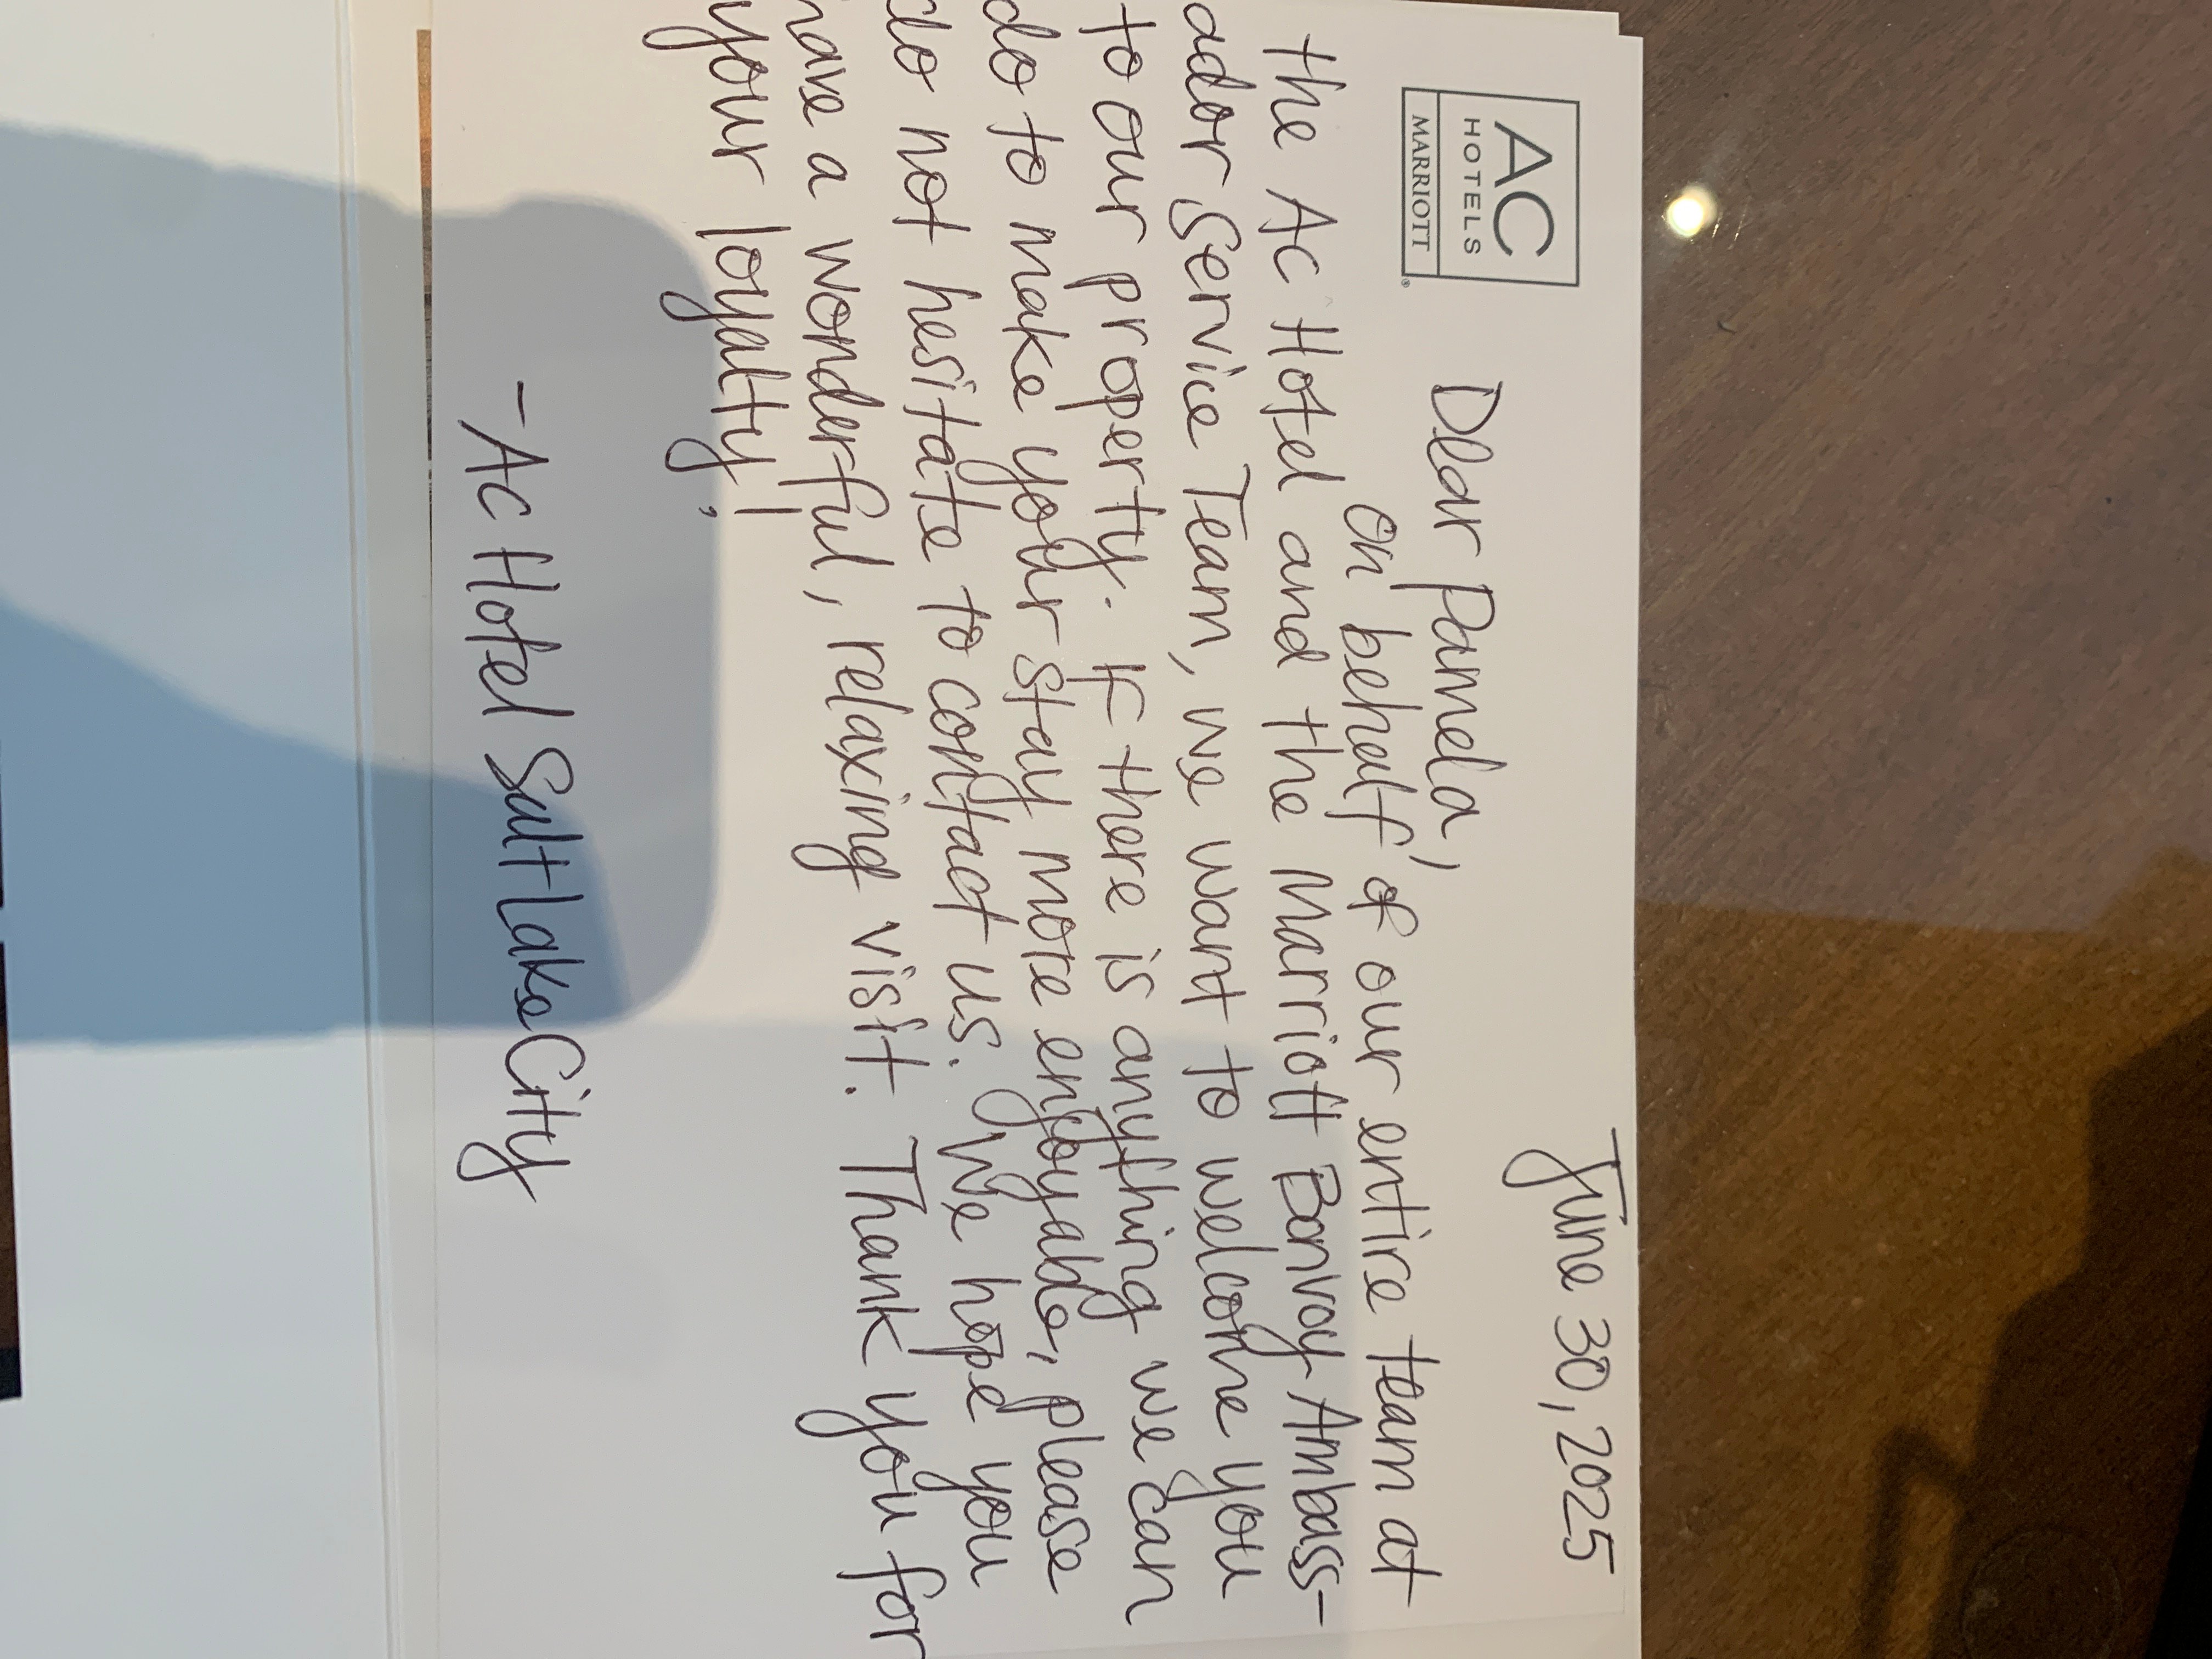 AC
HOTELS
MARRIOTT®
June 30, 2025
Dear Pamela,
On behalf of our entire team at
the AC Hotel and the Marriott Bonvoy Ambass-
ador Service Team, we want to welcome you
to our property. If there is anything we can
do to make your stay more enjoyable, please
do not hesitate to contact us. We hope you
have a wonderful, relaxing visit. Thank you for
your loyalty!
- AC Hotel Salt Lake City